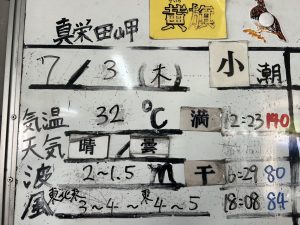 真栄田岬
7/3(木) 小潮
気温 32℃ 満 12:23 140
天気 晴/曇
波 2~1.5m 干 16:29 80
風 東北東3~4~東4~5 18:08 84